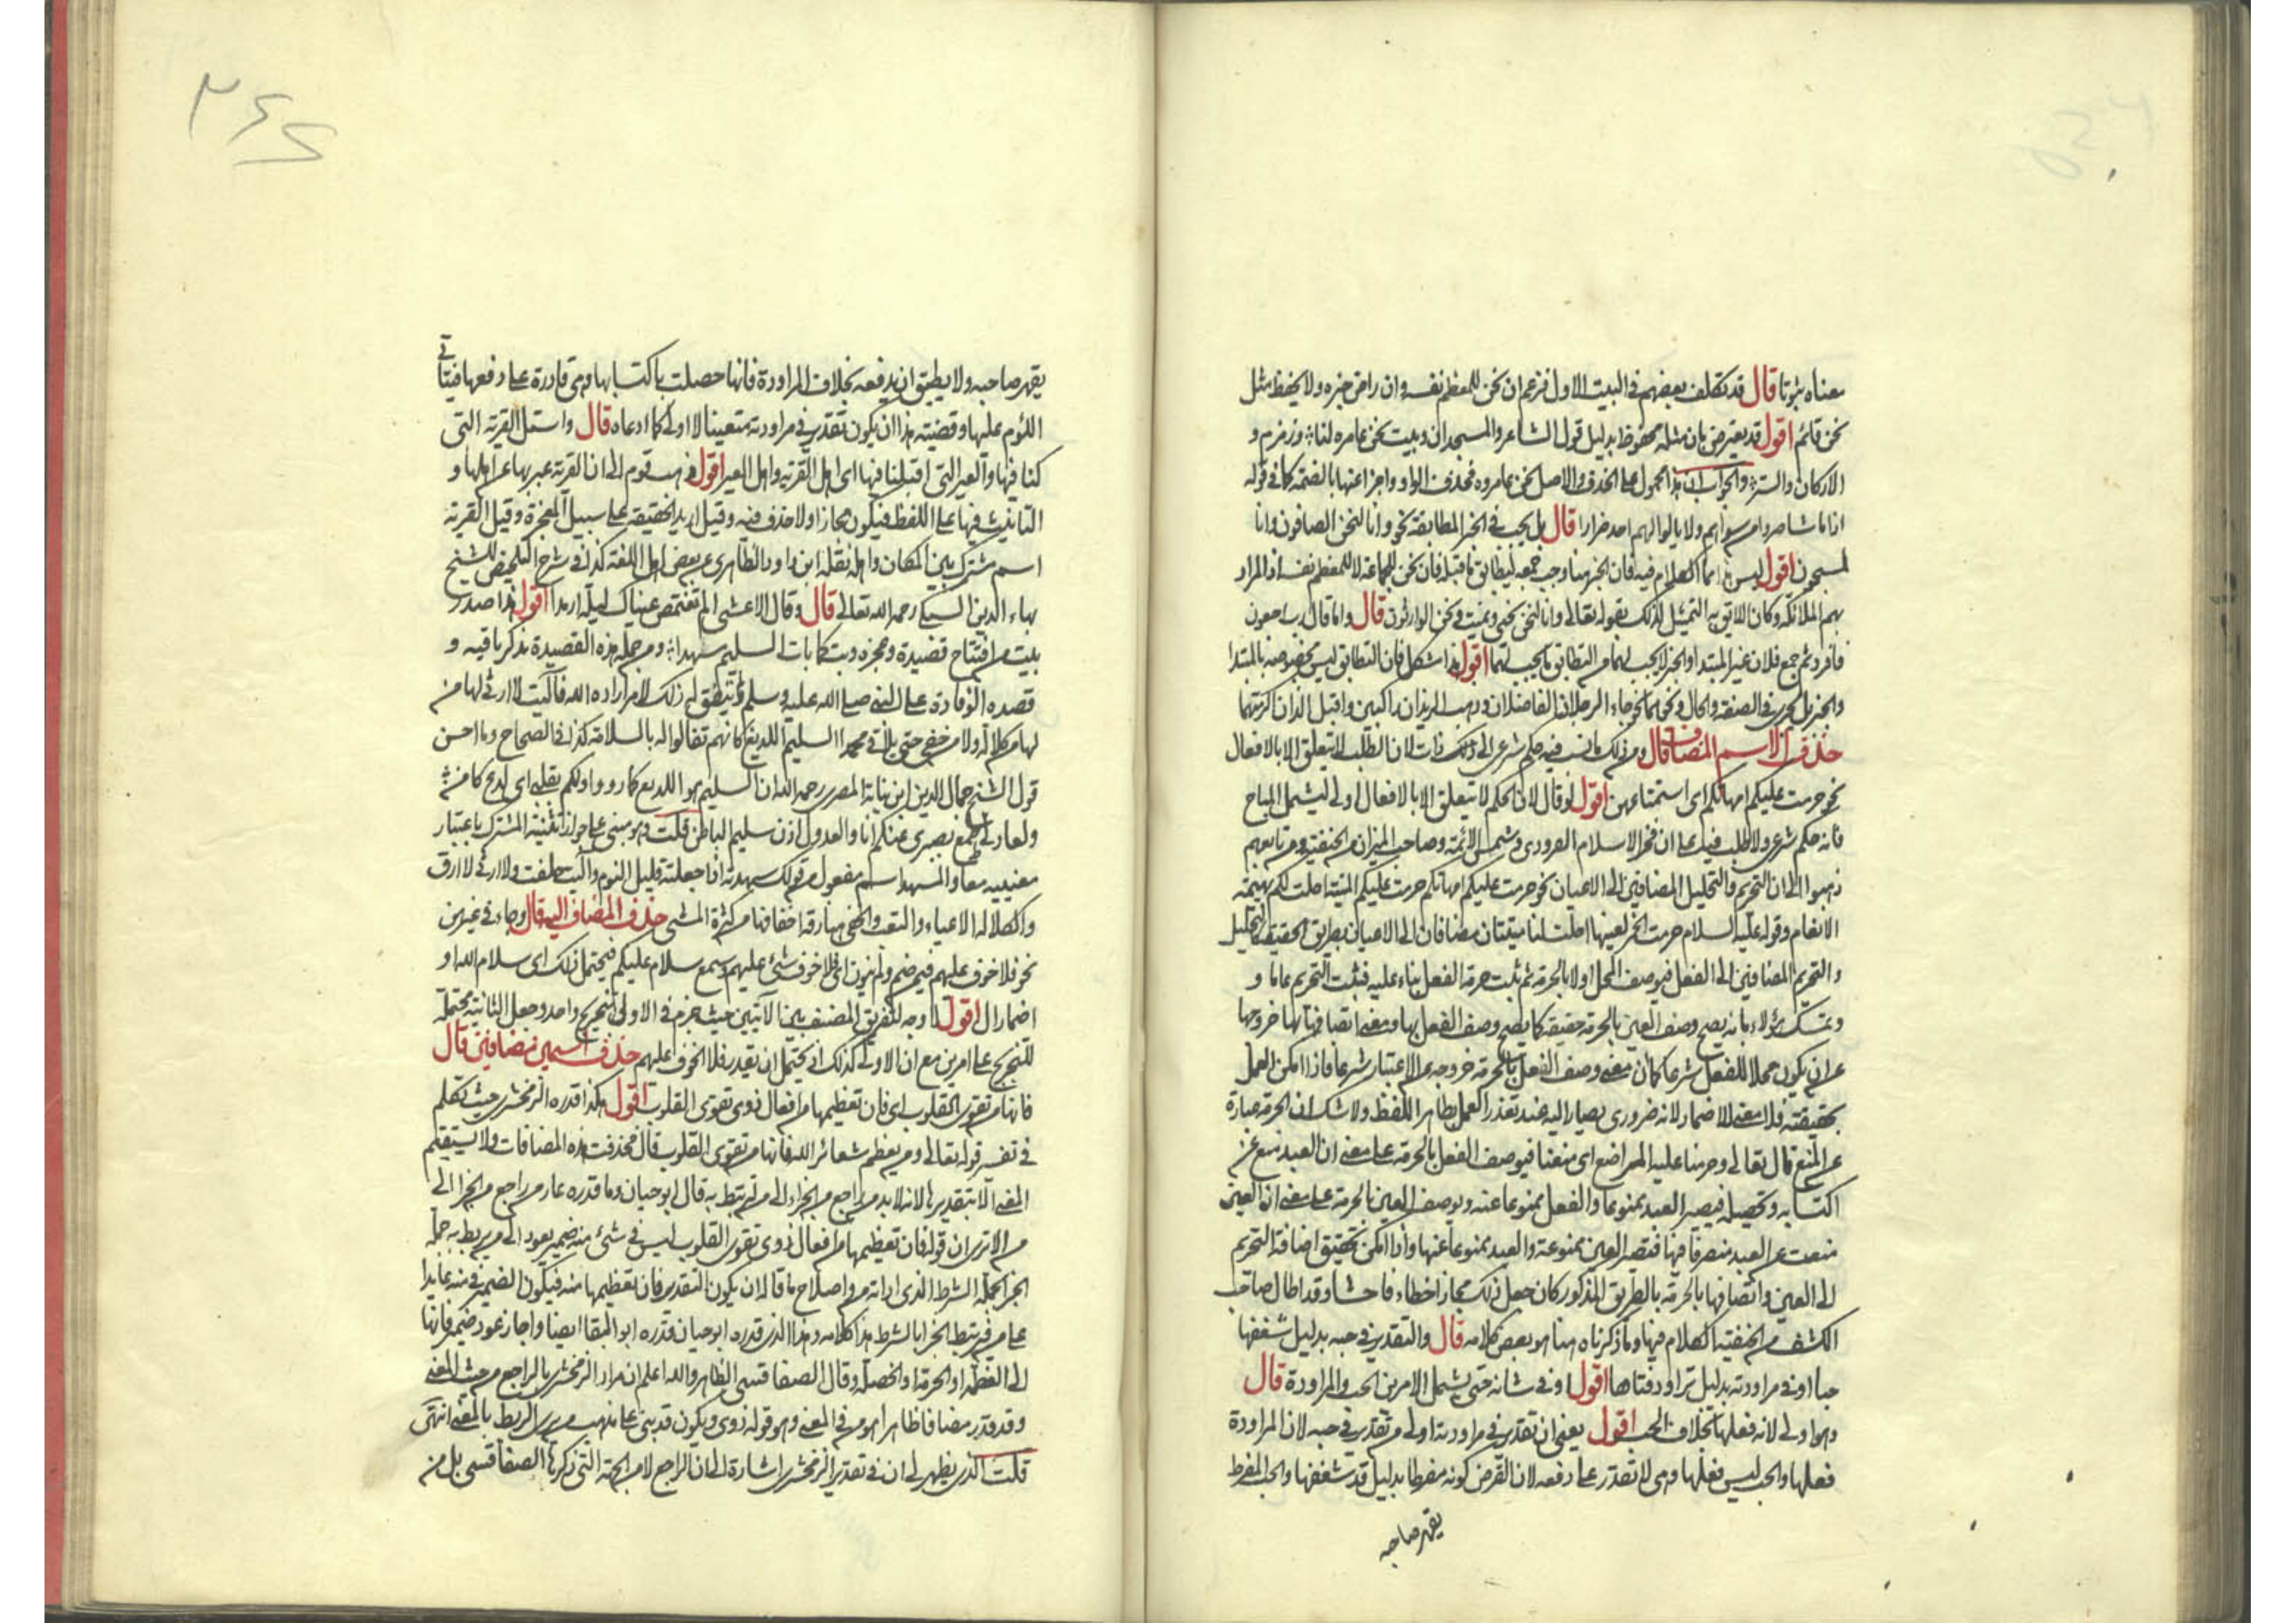 معناه ثبوتا قال قد تكلف بعضهم فى البيت الاول فزعم ان نحن للمعظم نفسه وان راض خبره ولا يحفظ مثل
نحن قائم اقول قد يعترض بان مثله محفوظ بدليل قول الشاعر والمسجدان وبيت نحن عامره لنا وزمزم و
الاركان والستر والجواب ان هذا محمول على الحذف والاصل نحن عامروه فحذف الواو واجزا عنها بالضمة كما فى قوله
اذا ما شاء ضروا من سواهم ولا يالوا لهم احد ضرارا قال بل يجب فى الخبر المطابقة نحو وانا لنحن الصافون وانا
لمسبحون اقول ليس هذا مما الكلام فيه فان الخبر هنا وجب جمعه ليطابق ما قبله فان نحن للجماعة لا للمعظم نفسه اذ المراد
بهم الملائكة وكان الاليق به التمثيل لذلك بقوله تعالى وانا لنحن نحيى ونميت ونحن الوارثون قال واما قال رب ارجعون
فافرد ثم جمع فلان غير المبتدا والخبر لا يجب لهما من التطابق ما يجب لهما اقول هذا مشكل فان التطابق ليس مخصوصه بالمبتدا
والخبر بل يجرى فى الصفة والحال ونحوهما نحو جاء الرجلان الفاضلان وذهب الزيدان راكبين واقبل اللذان اكرمتهما
حذف الاسم المضاف قال ومن ذلك ما نسب فيه حكم شرعى الى ذات لان الطلب لا يتعلق الا بالافعال
نحو حرمت عليكم امهاتكم اى استمتاعهن اقول لو قال لان الحكم لا يتعلق الا بالافعال اولى ليشمل المباح
فانه حكم شرعى ولا طلب فيه على ان فخر الاسلام البزدوى وشمس الائمة وصاحب الميزان من الحنفية ومن تابعهم
ذهبوا الى ان التحريم والتحليل المضافين الى الاعيان نحو حرمت عليكم امهاتكم حرمت عليكم الميتة احلت لكم بهيمة
الانعام وقوله عليه السلام حرمت الخمر لعينها احلت لنا ميتتان مضافان الى الاعيان بطريق الحقيقة كالتحليل
والتحريم المضافين الى الفعل فيوصف المحل اولا بالحرمة ثم ثبت حرمة الفعل بناء عليه فثبت التحريم عاما و
وتمسك هؤلاء بانه يصح وصف العين بالحرمة حقيقة كما يصح وصف الفعل بها ومعنى اتصافها بها خروجها
عن ان يكون محلا للفعل شرعا كما ان معنى وصف الفعل بالحرمة خروجه من الاعتبار شرعا فاذا امكن العمل
بحقيقته فلا معنى للاضمار لانه ضرورى يصار اليه عند تعذر العمل بظاهر اللفظ ولا شك ان الحرمة عبارة
عن المنع قال تعالى وحرمنا عليه المراضع اى منعنا فيوصف الفعل بالحرمة على معنى ان العبد منع عن
اكتسابه وتحصيله فيصير العبد ممنوعا والفعل ممنوعا عنه ويوصف العين بالحرمة على معنى ان العين
منعت عن العبد متصرفا فيها فتصير العين ممنوعة والعبد ممنوعا عنها واذا امكن تحقيق اضافة التحريم
الى العين واتصافها بالحرمة بالطريق المذكور كان جعل ذلك مجازا خطاء فاحشا وقد اطال صاحب
الكشف من الحنفية الكلام فيها وما ذكرناه هنا هو بعض كلامه قال والتقدير فى حبه بدليل شغفها
حبا او فى مراودته بدليل تراود فتاها اقول او فى شانه حتى يشمل الامرين الحب والمراودة قال
وهو اولى لانه فعلها بخلاف الحب اقول يعنى ان تقدير فى مراودته اولى من تقدير فى حبه لان المراودة
فعلها والحب ليس فعلها وهى لا تقدر على دفعه لان الفرض كونه مفرطا بدليل قد شغفها والحب المفرط
يقهر صاحبه
٣٤٤
يقهر صاحبه ولا يطيق ان يدفعه بخلاف المراودة فانها حصلت باكتسابها وهى قادرة على دفعها فيتاتى
اللوم عليها وقضيته هذا ان يكون تقدير فى مراودته متعينا لا اولى كما ادعاه قال واسئل القرية التى
كنا فيها والعير التى اقبلنا فيها اى اهل القرية واهل العير اقول ذهب قوم الى ان القرية عبر بها عن اهلها و
التانيث فيها على اللفظ فيكون مجازا ولا حذف فيه وقيل اريد الحقيقة على سبيل المعجزة وقيل القرية
اسم مشترك بين المكان واهله نقله ابن داود الظاهرى عن بعض اهل اللغة كذا فى شرح التلخيص للشيخ
بهاء الدين السبكى رحمه الله تعالى قال وقال الاعشى الم تغتمض عيناك ليلة ارمدا اقول هذا صدر
بيت من افتتاح قصيدة وعجزه وبت كما بات السليم مسهدا ومن جملة هذه القصيدة يذكر ناقته و
قصده الوفادة على النبى صلى الله عليه وسلم ولم يتفق له ذلك لامر اراده الله فآليت لا ارثى لها من
لها من كلالة ولا من حفى حتى تلاقى محمدا السليم اللديغ كانهم تفالوا له بالسلامة كذا فى الصحاح وما احسن
قول الشيخ جمال الدين ابن نباتة المصرى رحمه الله ان السليم هو اللديغ كما رووا ولكم بقلبى اى لدغ كامن
ولعاذلى سمع بصيرى عنكم انا والعذول اذن سليم الباطن قلت وهو مبنى على جواز تثنية المشترك باعتبار
معنييه معا والمسهد اسم مفعول من قولك سهدته اذا جعلته قليل النوم وآليت حلفت ولا ارثى لا ارق
والكلالة الاعياء والتعب والحفى هنا رقة اخفافها من كثرة المشى حذف المضاف اليه قال وجاء فى غيرهن
نحو فلا خوف عليهم فيمن ضم ولم ينون اى فلا خوف شىء عليهم وسمع سلام عليكم فيحتمل ذلك اى سلام الله او
اضمار ال اقول لا وجه لتفريق المصنف بين الآيتين حيث جزم فى الاولى بتخريج واحد وجعل الثانية محتملة
للتخريج على امرين مع ان الاولى كذلك اذ يحتمل ان يقدر فلا الخوف عليهم حذف اسمين مضافين قال
فانها من تقوى القلوب اى فان تعظيمها من افعال ذوى تقوى القلوب اقول هكذا قدره الزمخشرى حيث تكلم
فى تفسير قوله تعالى ومن يعظم شعائر الله فانها من تقوى القلوب قال فحذفت هذه المضافات ولا يستقيم
المعنى الا بتقديرها لانه لا بد من راجع من الجزاء الى من ليرتبط به قال ابو حيان وما قدره عار من راجع من الجزا الى
من الا ترى ان قوله فان تعظيمها من افعال ذوى تقوى القلوب ليس فى شىء منه ضمير يعود الى من يربط به جملة
الجزا بجملة الشرط الذى اداته من واصلاح ما قاله ان يكون التقدير فان تعظيمها منه فيكون الضمير فى منه عايدا
على من فيرتبط الجزا بالشرط هذا كلامه وهذا الذى قدره ابو حيان قدره ابو البقا ايضا واجاز عود ضمير فانها
الى العظمة او الحرمة او الخصلة وقال الصفاقسى الظاهر والله اعلم ان مراد الزمخشرى بالراجع من حيث المعنى
وقد قدر مضافا ظاهرا هو من فى المعنى وهو قوله ذوى ويكون قد بنى على مذهب من يرى الربط بالمعنى انتهى
قلت الذى يظهر لى ان فى تقدير الزمخشرى اشارة الى ان الراجع لا من الجهة التى ذكرها الصفاقسى بل من